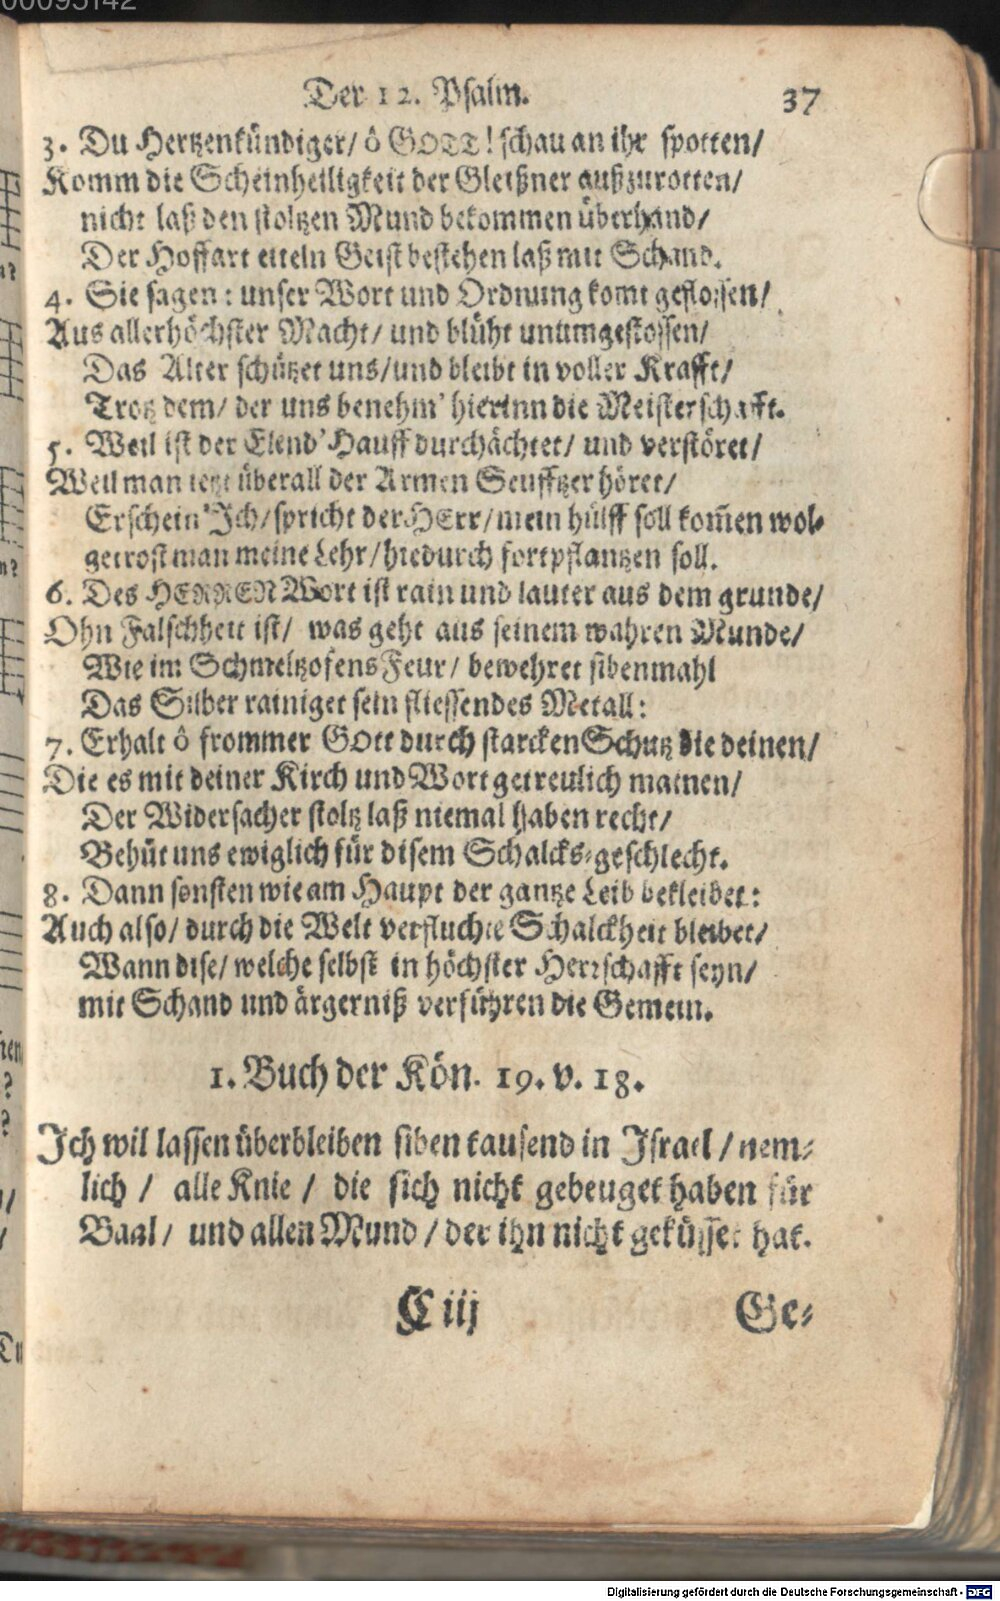 00095142
Der 12. Psalm. 37
3. Du Hertzenkündiger/ ô GOTT! schau an ihr spotten/
Komm die Scheinheiligkeit der Gleißner außzurotten/
nicht laß den stoltzen Mund bekommen überhand/
Der Hoffart eiteln Geist bestehen laß mit Schand.
4. Sie sagen: unser Wort und Ordnung komt geflossen/
Aus allerhöchster Macht/ und blüht unumgestossen/
Das Alter schützet uns/ und bleibt in voller Krafft/
Trotz dem/ der uns benehm' hierinn die Meisterschafft.
5. Weil ist der Elend' Hauff durchächtet/ und verstöret/
Weil man ietzt überall der Armen Seufftzer höret/
Erschein' Ich/ spricht der HErr/ mein hülff soll kom̃en wol-
getrost man meine Lehr/ hiedurch fortpflantzen soll.
6. Des HERREN Wort ist rain und lauter aus dem grunde/
Ohn Falschheit ist/ was geht aus seinem wahren Munde/
Wie im Schmeltzofens Feur/ bewehret sibenmahl
Das Silber rainiget sein fliessendes Metall:
7. Erhalt ô frommer GOtt durch starcken Schutz die deinen/
Die es mit deiner Kirch und Wort getreulich mainen/
Der Widersacher stoltz laß niemal haben recht/
Behüt uns ewiglich für disem Schalcks-geschlecht.
8. Dann sonsten wie am Haupt der gantze Leib bekleibet:
Auch also/ durch die Welt verfluchte Schalckheit bleibet/
Wann dise/ welche selbst in höchster Herrschafft seyn/
mit Schand und ärgerniß verführen die Gemein.
1. Buch der Kön. 19. v. 18.
Ich wil lassen überbleiben siben tausend in Israel / nem-
lich / alle Knie / die sich nicht gebeuget haben für
Baal/ und allen Mund / der ihn nicht geküsset hat.
C iij Ge-
Digitalisierung gefördert durch die Deutsche Forschungsgemeinschaft - DFG